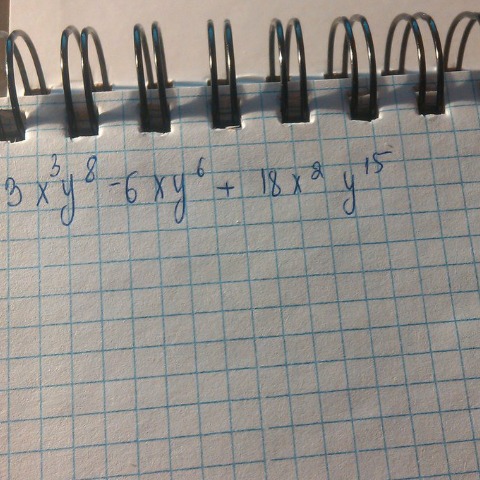 3x³y⁸ - 6xy⁶ + 18x² y¹⁵